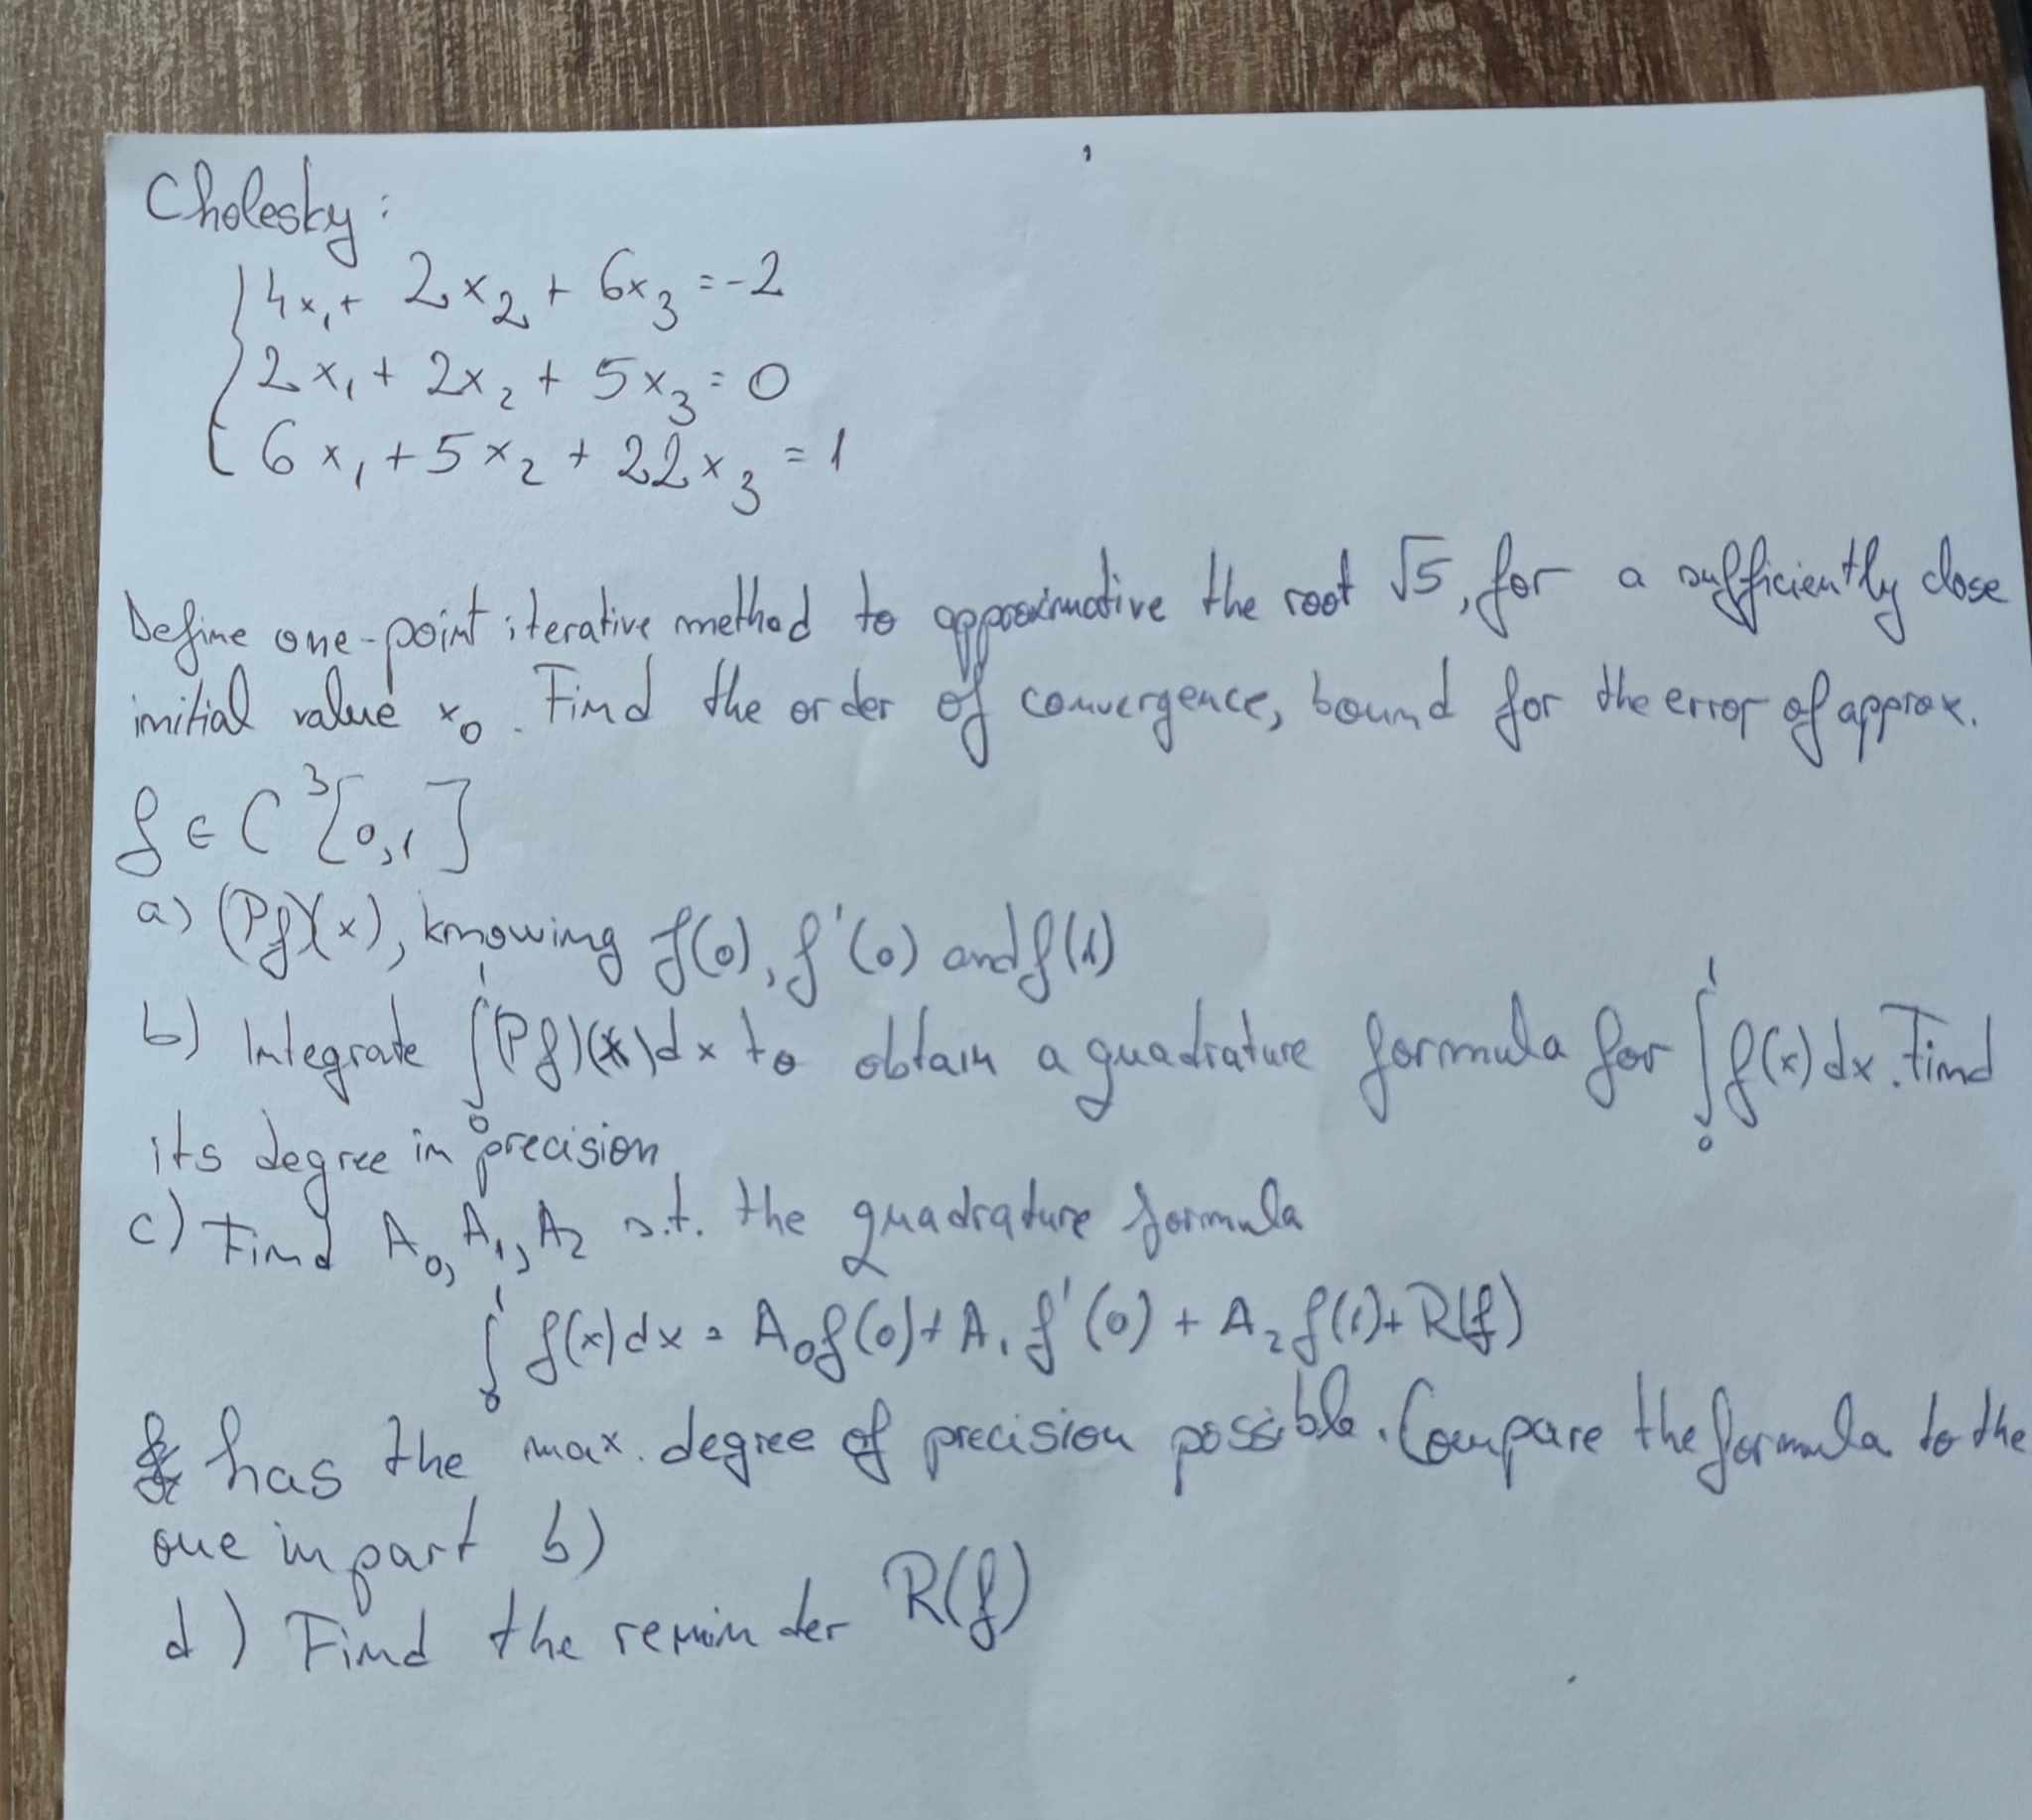 Cholesky:
4x₁ + 2x₂ + 6x₃ = -2
2x₁ + 2x₂ + 5x₃ = 0
6x₁ + 5x₂ + 22x₃ = 1
Define one-point iterative method to approximative the root √5, for a sufficiently close
initial value x₀. Find the order of convergence, bound for the error of approx.
f ∈ C³[0,1]
a) (Pf)(x), knowing f(0), f'(0) and f(1)
b) Integrate ∫₀¹(Pf)(x)dx to obtain a quadrature formula for ∫₀¹f(x)dx. Find
its degree in precision
c) Find A₀, A₁, A₂ s.t. the quadrature formula
∫₀¹ f(x)dx = A₀f(0) + A₁f'(0) + A₂f(1) + R(f)
has the max. degree of precision possible. Compare the formula to the
one in part b)
d) Find the remainder R(f)